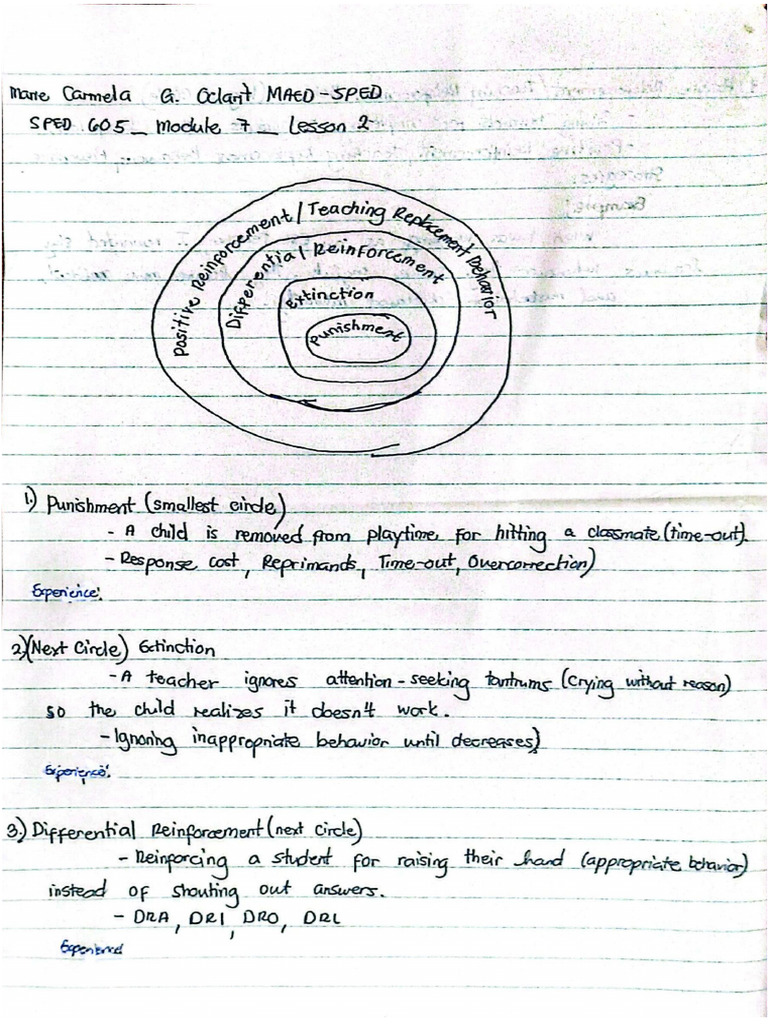 Marie Carmela G. Oclarit MAED-SPED
SPED 605_ Module 7 _ Lesson 2
Positive Reinforcement / Teaching Replacement Behavior
Differential Reinforcement
Extinction
Punishment
1.) Punishment (smallest circle)
- A child is removed from playtime for hitting a classmate (time-out).
- Response cost, Reprimands, Time-out, Overcorrection)
Experience:
2.)(Next Circle) Extinction
- A teacher ignores attention-seeking tantrums (crying without reason)
so the child realizes it doesn't work.
- Ignoring inappropriate behavior until decreases)
Experience:
3.) Differential Reinforcement (next circle)
- Reinforcing a student for raising their hand (appropriate behavior)
instead of shouting out answers.
- DRA, DRI, DRO, DRL
Experience: